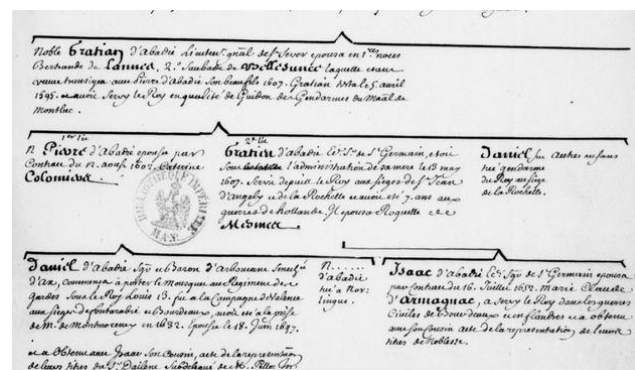 Noble Gratian d'Abadie Lieuten.t gnãl de S.t Sever epousa en 1.res noces
Bertrande de Lannea, 2.º Saubade de Bellesunce laquelle etant
veuve transigea avec Pierre d'Abadie son beaufils 1607. Gratian testa le 5. avril
1595. et avoir servy le Roy en qualité de Guidon des Gendarmes du Maal de
Montluc.
1.er lit
N. Pierre d'Abadie epousa par
Contrat du 12. aoust 1607. Caterine
Colomiers.
2.e lit
Gratien d'Abadie Ec.r S.r de S.t Germain, etoit
sous l'administration de sa mere le 13 may
1607. Servit depuis le Roy aux sieges de S.t Jean
d'Angely et de la Rochelle et avoir eté 7. ans aux
guerres de hollande. Il epousa Roquette de
Mesmes
Daniel son autre enfans
tué gendarme
du Roy au siege
de la Rochelle.
BIBLIOTHEQUE IMPERIALE
MAN.
Daniel d'Abadie Sgr et Baron d'Arboucave
d'Ax, commença à porter le mousquet au Regiment des
gardes sous le Roy Louis 13. fut a la Campagne de Valence
aux sieges de fontarabie et Bourdeaux, avoit eté à la prise
de M. de Montmorency en 1632. Epousa le 18. Juin 1647.
et a obtenu avec Isaac son Cousin, acte de la representation
de leurs titres du S.r Dailenc Subdelegué de M. Pellot
N......
d'abadie
tué a Nor-
lingue.
Isaac d'Abadie Ec.r Sgr de S.t Germain epousa
par contrat du 16. Juillet 1652. Marie Claude
d'Armagnac, a servy le Roy dans les guerres
Civiles de Bourdeaux et en flandres et a obtenu
avec son Cousin acte de la representation de leurs
titres de Noblesse.